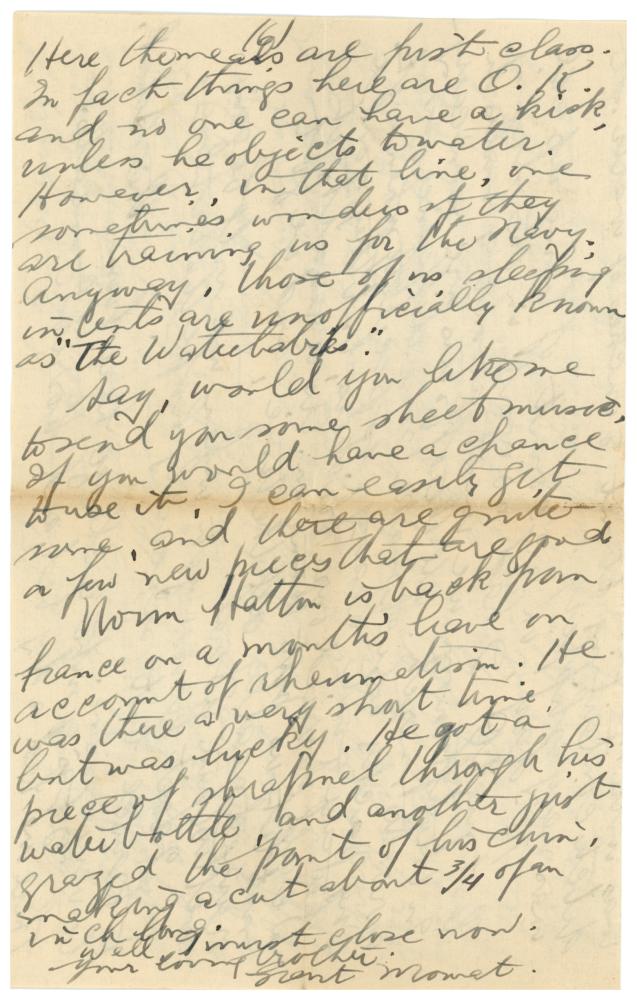 (6)
Here the meals are first class.
In fact things here are O.K.
and no one can have a kick,
unless he objects to water.
However, in that line, one
sometimes wonders if they
are training us for the Navy.
Anyway, those of us sleeping
in tents are unofficially known
as "the Waterbabies."
Say, would you like me
to send you some sheet music,
if you would have a chance
to use it. I can easily get
some, and there are quite
a few new pieces that are good
Norm Hatton is back from
france on a months leave on
account of rheumatism. He
was there a very short time,
but was lucky. He got a
piece of shrapnel through his
water bottle, and another just
grazed the point of his chin,
making a cut about 3/4 of an
inch long.
Well I must close now.
Your loving brother.
Grant Mowat.